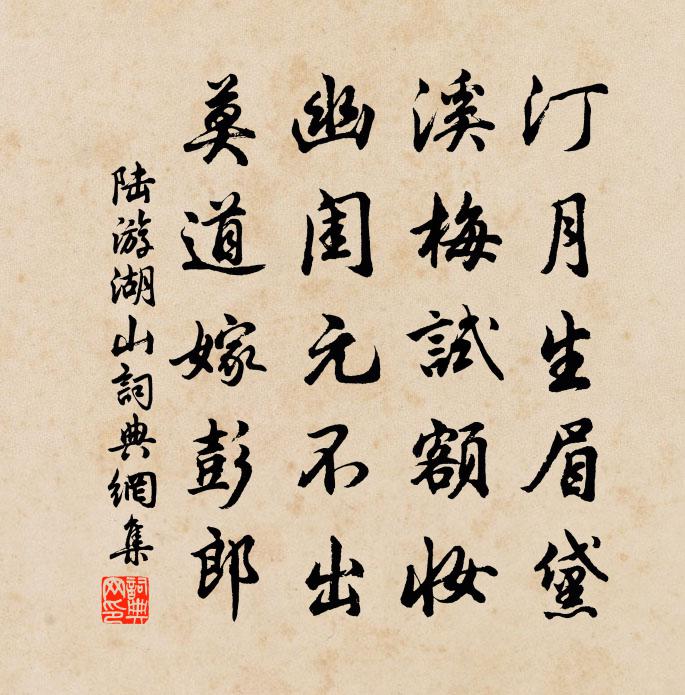 汀月生眉黛
溪梅試額妝
幽閨元不出
莫道嫁彭郎
陆游湖山詞典網集
詞典网印